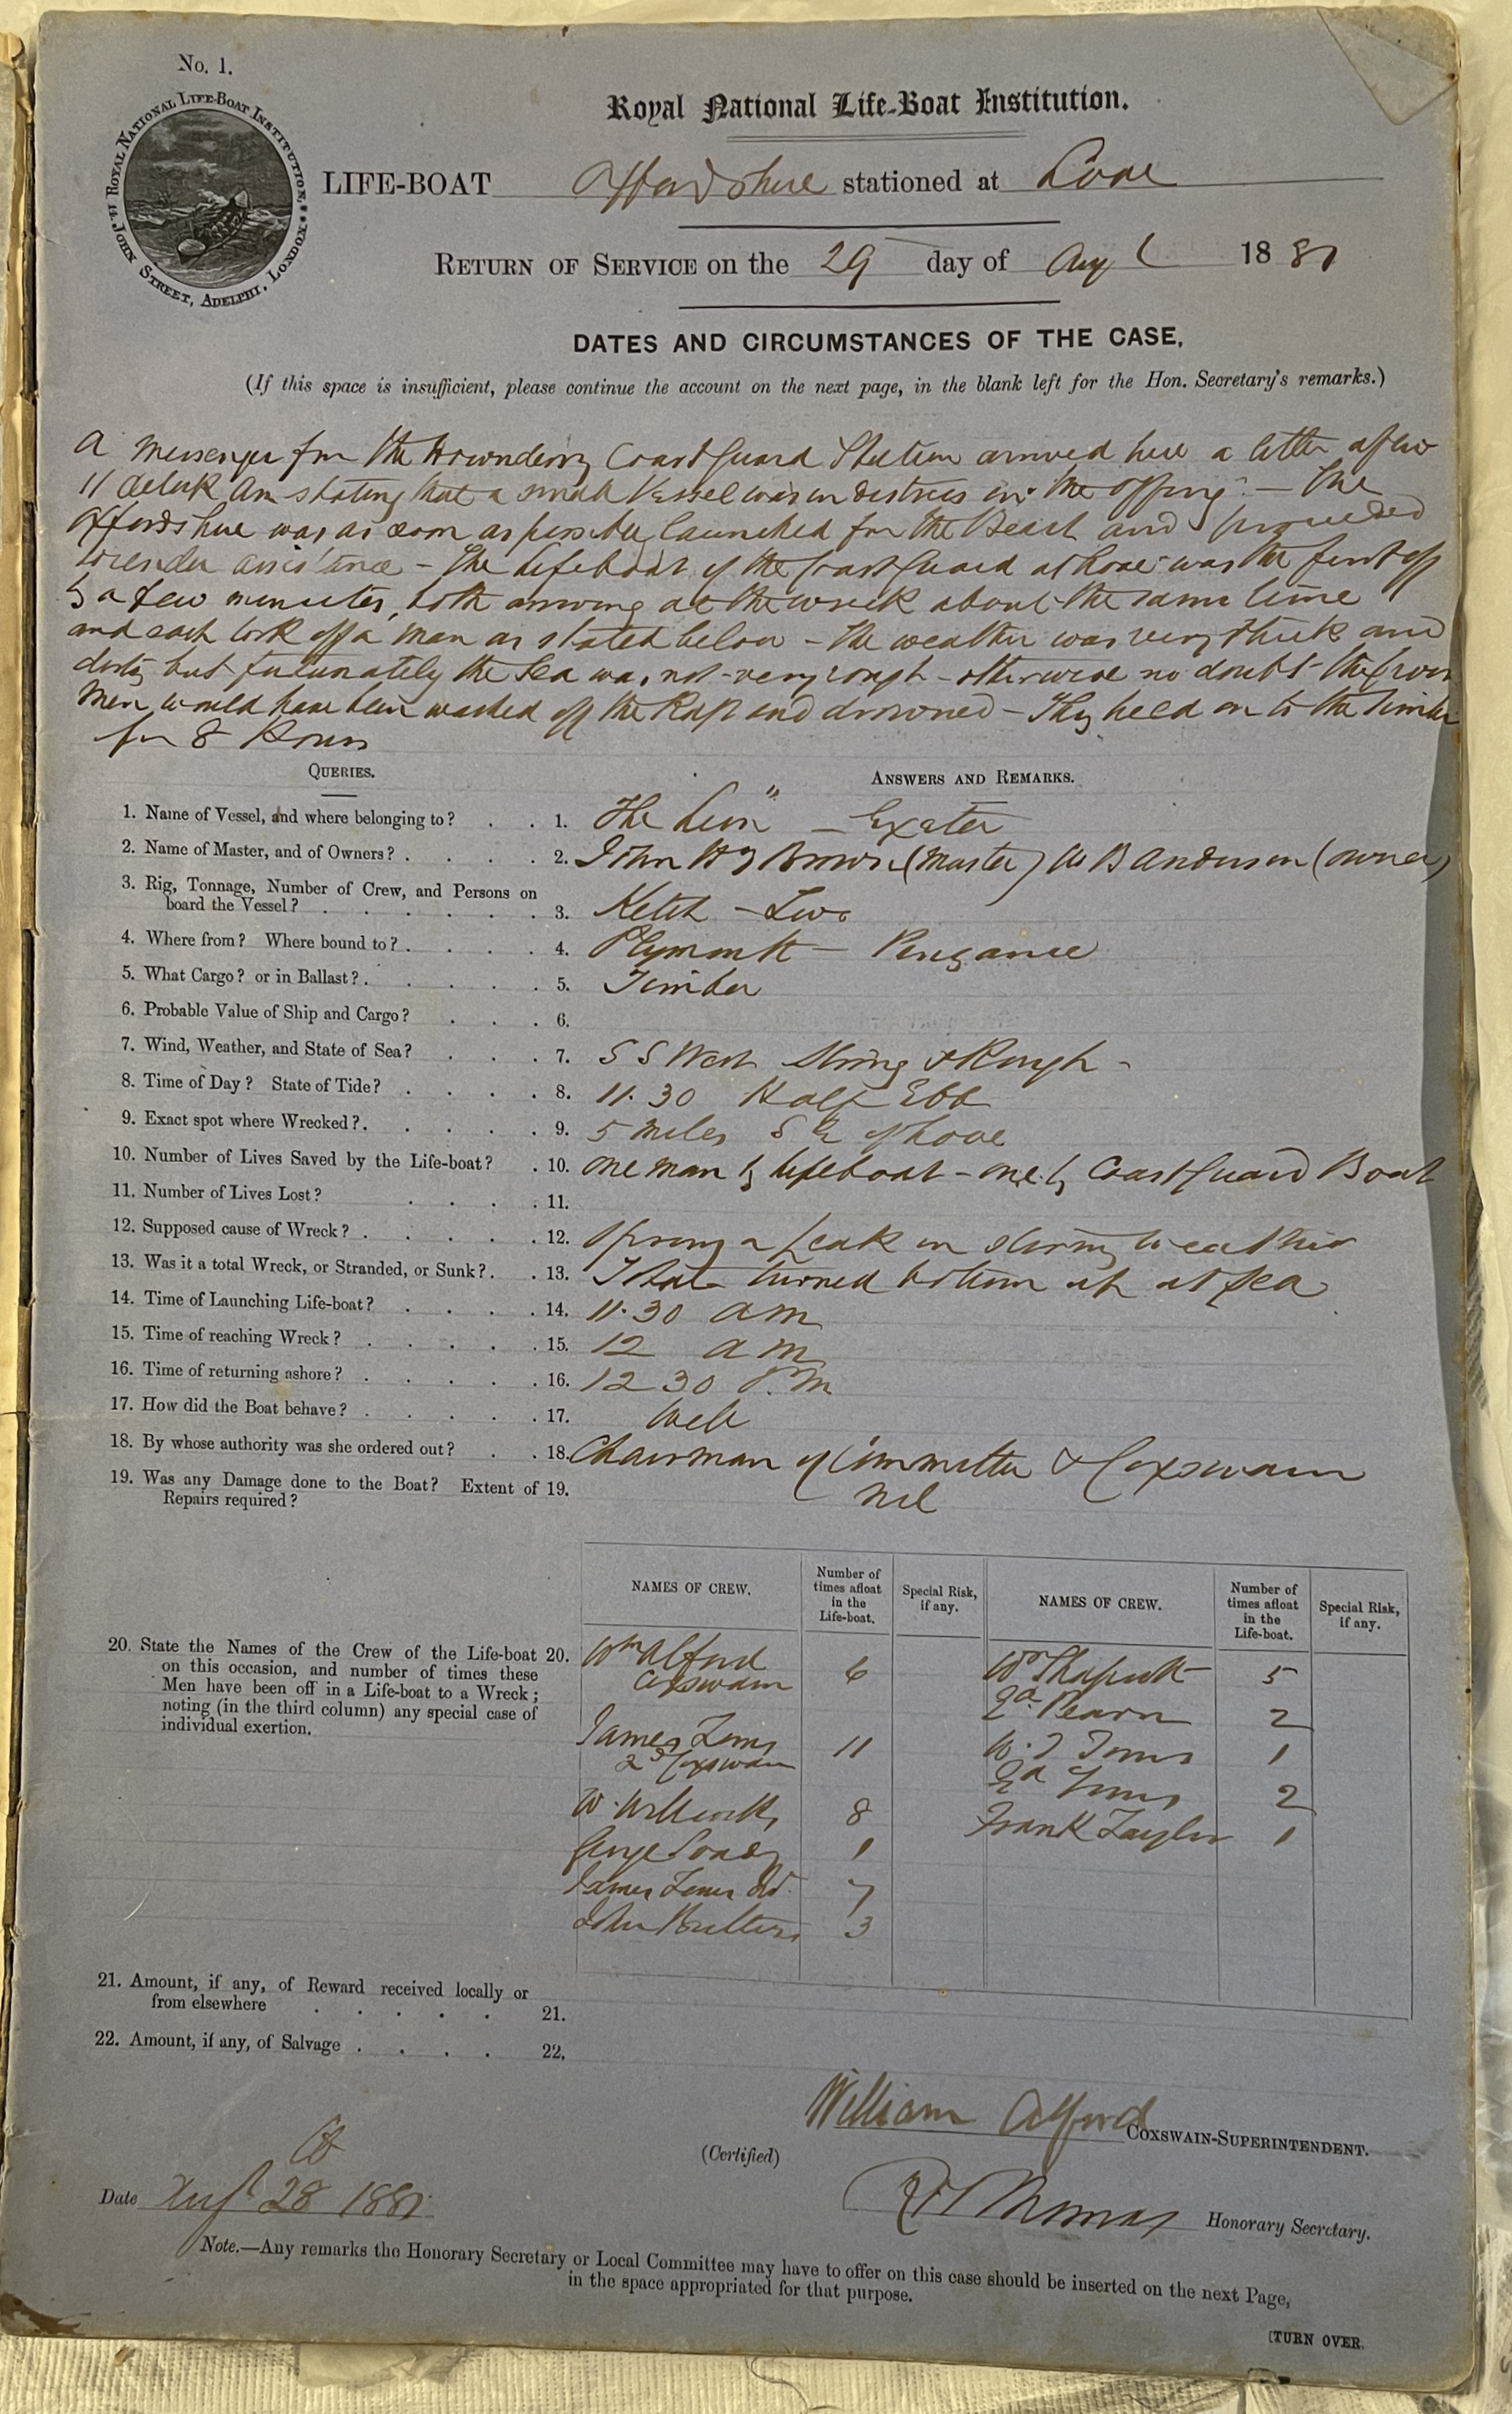 No. 1.
ROYAL NATIONAL LIFE-BOAT INSTITUTION, 14, JOHN STREET, ADELPHI, LONDON.
Royal National Life-Boat Institution.
LIFE-BOAT Oxfordshire stationed at Looe
RETURN OF SERVICE on the 29 day of Augt 1881
DATES AND CIRCUMSTANCES OF THE CASE.
(If this space is insufficient, please continue the account on the next page, in the blank left for the Hon. Secretary's remarks.)
A Messenger from the Downderry Coast Guard Station arrived here a little after
11 oclock Am stating that a small Vessel was in distress in the offing. — The
Oxfordshire was as soon as possible launched from the Beach and proceeded
to render assistance — The Lifeboat of the Coast Guard at Looe was the first off
by a few minutes, both arriving at the wreck about the same time
and each took off a man as stated below — the weather was very thick and
dirty but fortunately the Sea was not very rough — otherwise no doubt the two
men would have been washed off the Raft and drowned — They held on to the Timber
for 8 Hours
QUERIES.
ANSWERS AND REMARKS.
1. Name of Vessel, and where belonging to? 1. The Lion" — Exeter
2. Name of Master, and of Owners? 2. John Hy Brown (Master) W B Anderson (owner)
3. Rig, Tonnage, Number of Crew, and Persons on
board the Vessel? 3. Ketch — Two
4. Where from? Where bound to? 4. Plymouth — Penzance
5. What Cargo? or in Ballast? 5. Timber
6. Probable Value of Ship and Cargo? 6.
7. Wind, Weather, and State of Sea? 7. S S West Strong & Rough -
8. Time of Day? State of Tide? 8. 11.30 Half Ebb
9. Exact spot where Wrecked? 9. 5 miles S E of Looe
10. Number of Lives Saved by the Life-boat? 10. One man by Lifeboat — one by Coast Guard Boat
11. Number of Lives Lost? 11.
12. Supposed cause of Wreck? 12. Sprung a Leak in stormy weather
13. Was it a total Wreck, or Stranded, or Sunk? 13. Total turned bottom up at Sea
14. Time of Launching Life-boat? 14. 11.30 am
15. Time of reaching Wreck? 15. 12 am
16. Time of returning ashore? 16. 12 30 P.M
17. How did the Boat behave? 17. Well
18. By whose authority was she ordered out? 18. Chairman of Committee & Coxswain
19. Was any Damage done to the Boat? Extent of 19. Nil
Repairs required?
NAMES OF CREW. Number of times afloat in the Life-boat. Special Risk, if any. NAMES OF CREW. Number of times afloat in the Life-boat. Special Risk, if any.
20. State the Names of the Crew of the Life-boat 20.
on this occasion, and number of times these
Men have been off in a Life-boat to a Wreck;
noting (in the third column) any special case of
individual exertion.
Wm Alford 6
Coxswain
James Toms 11
2d Coxswain
W. Willcocks 8
George Soady 1
James Toms 7
John 3
Wm 5
Ed Pearn 2
W. J Toms 1
Ed Toms 2
Frank Taylor 1
21. Amount, if any, of Reward received locally or
from elsewhere 21.
22. Amount, if any, of Salvage 22.
William Alford COXSWAIN-SUPERINTENDENT.
(Certified)
Date Augt 28 1881
Thomas Honorary Secretary.
Note.—Any remarks the Honorary Secretary or Local Committee may have to offer on this case should be inserted on the next Page,
in the space appropriated for that purpose.
[TURN OVER.